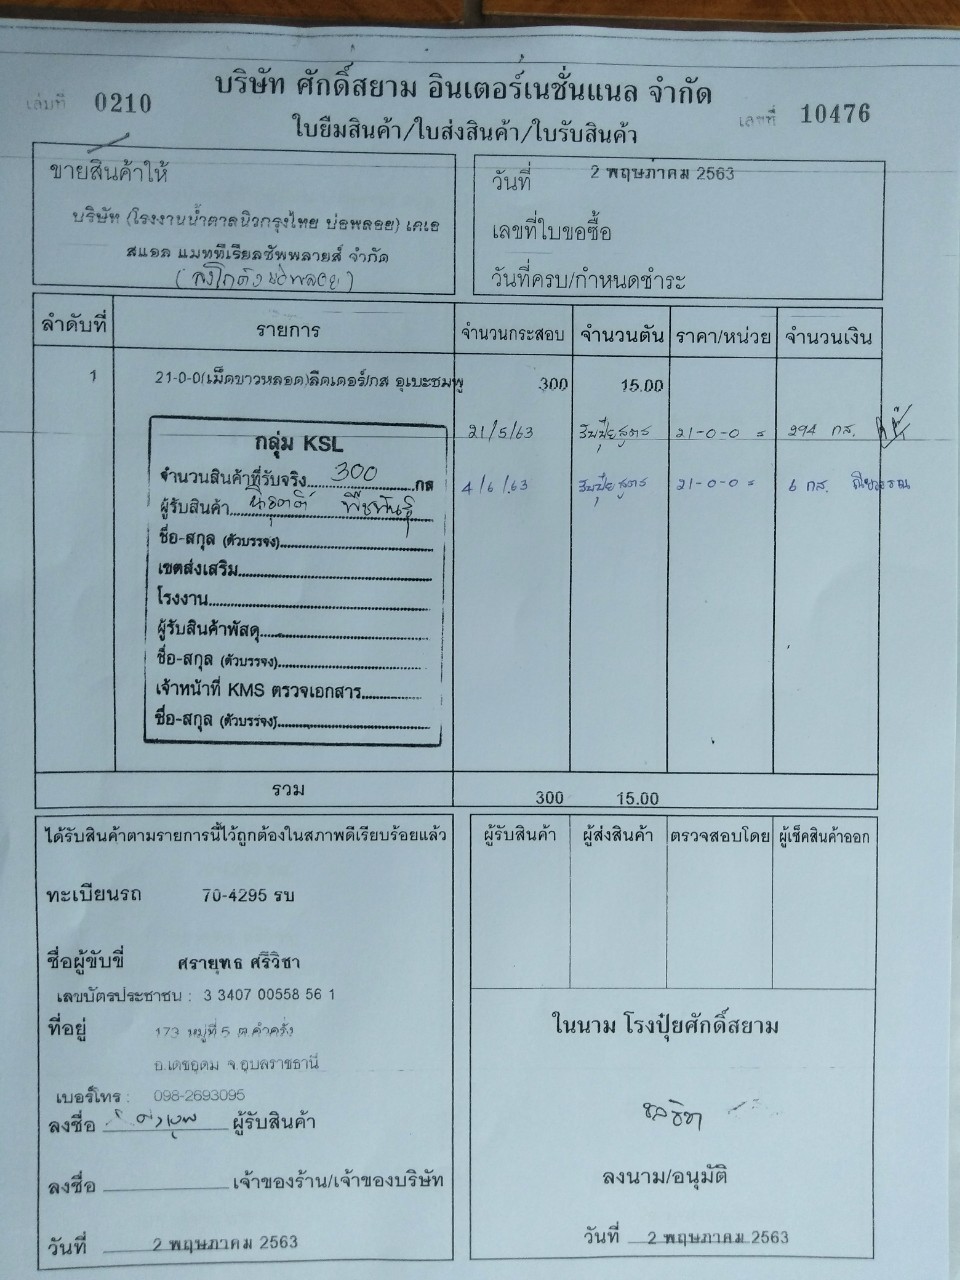 บริษัท ศักดิ์สยาม อินเตอร์เนชั่นแนล จำกัด
เล่มที่ 0210
เลขที่ 10476
ใบยืมสินค้า/ใบส่งสินค้า/ใบรับสินค้า
ขายสินค้าให้
บริษัท (โรงงานน้ำตาลนิวกรุงไทย บ่อพลอย) เคเอ
สแอล แมททีเรียลซัพพลายส์ จำกัด
(ลงโกดัง บ่อพลอย)
วันที่ 2 พฤษภาคม 2563
เลขที่ใบขอซื้อ
วันที่ครบ/กำหนดชำระ
ลำดับที่ รายการ จำนวนกระสอบ จำนวนตัน ราคา/หน่วย จำนวนเงิน
1 21-0-0(เม็ดขาวหลอด)ลีดเดอร์/กส อุเบะชมพู 300 15.00
21/5/63 รับปุ๋ยสูตร 21-0-0 = 294 กส.
4/6/63 รับปุ๋ยสูตร 21-0-0 = 6 กส.
กลุ่ม KSL
จำนวนสินค้าที่รับจริง 300 กส
ผู้รับสินค้า
ชื่อ-สกุล (ตัวบรรจง)
เขตส่งเสริม
โรงงาน
ผู้รับสินค้าพัสดุ
ชื่อ-สกุล (ตัวบรรจง)
เจ้าหน้าที่ KMS ตรวจเอกสาร
ชื่อ-สกุล (ตัวบรรจง)
รวม 300 15.00
ได้รับสินค้าตามรายการนี้ไว้ถูกต้องในสภาพดีเรียบร้อยแล้ว
ทะเบียนรถ 70-4295 รบ
ชื่อผู้ขับขี่ ศรายุทธ ศรีวิชา
เลขบัตรประชาชน : 3 3407 00558 56 1
ที่อยู่ 173 หมู่ที่ 5 ต.คำครั่ง
อ.เดชอุดม จ.อุบลราชธานี
เบอร์โทร : 098-2693095
ลงชื่อ ผู้รับสินค้า
ลงชื่อ เจ้าของร้าน/เจ้าของบริษัท
วันที่ 2 พฤษภาคม 2563
ผู้รับสินค้า ผู้ส่งสินค้า ตรวจสอบโดย ผู้เช็คสินค้าออก
ในนาม โรงปุ๋ยศักดิ์สยาม
ลงนาม/อนุมัติ
วันที่ 2 พฤษภาคม 2563